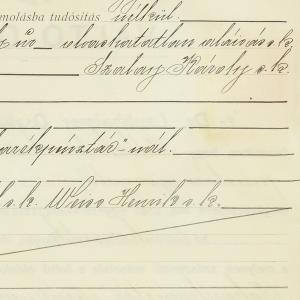 számolásba tudósítás nélkül.
úr olvashatatlan aláírás s.k.
Szalay Károly s.k.
takarékpénztár"-nál.
s.k. Weiss Henrik s.k.